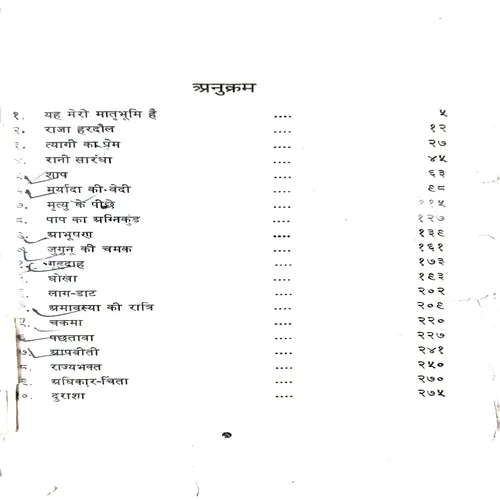 अनुक्रम
१. यह मेरी मातृभूमि है .... ५
२. राजा हरदौल .... १२
३. त्यागी का प्रेम .... २७
४. रानी सारंधा .... ४५
शाप .... ६३
मर्यादा की-वेदी .... ९८
७. मृत्यु के पीछे .... ११५
८. पाप का अग्निकुंड .... १२७
आभूषण .... १३९
जुगुनू की चमक .... १६१
गृहदाह .... १७३
धोखा .... १९३
लाग-डाट .... २०२
अमावस्या की रात्रि .... २०९
चकमा .... २२०
पछतावा .... २२७
७. आपबीती .... २४१
राज्यभक्त .... २५०
अधिकार-चिंता .... २७०
दुराशा .... २७५